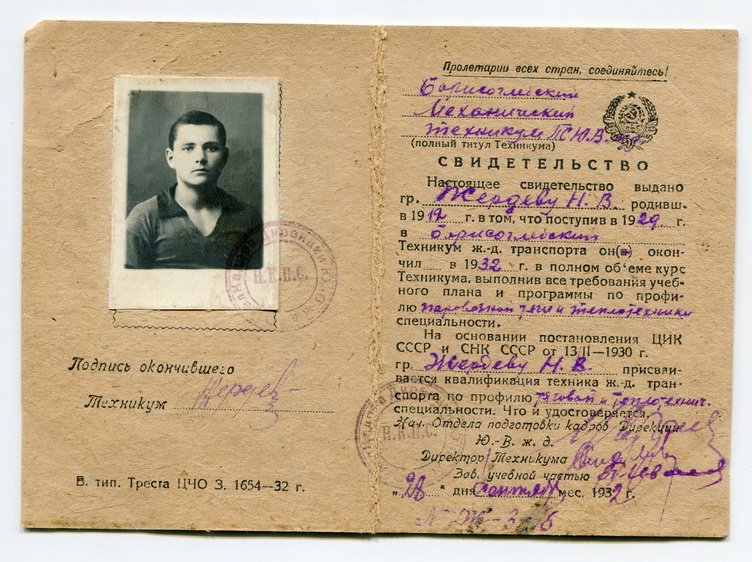 Подпись окончившего
Техникум Жердев
В. тип. Треста ЦЧО З. 1654—32 г.
Н.К.П.С.
Пролетарии всех стран, соединяйтесь!
Борисоглебский
Механический
техникум Ю.В.
(полный титул Техникума)
СВИДЕТЕЛЬСТВО
Настоящее свидетельство выдано
гр. Жердеву Н. В. родивш.
в 1912 г. в том, что поступив в 1929 г.
в Борисоглебский
Техникум ж.-д. транспорта он(а) окон-
чил в 1932 г. в полном об'еме курс
Техникума, выполнив все требования учеб-
ного плана и программы по профи-
лю паровозной тяги и теплотехники
специальности.
На основании постановления ЦИК
СССР и СНК СССР от 13/II—1930 г.
гр. Жердеву Н. В. присваи-
вается квалификация техника ж.-д. тран-
спорта по профилю тяговой и теплотехнич.
специальности. Что и удостоверяется.
Нач. Отдела подготовки кадров Дирекции
Ю.-В. ж. д.
Директор Техникума
Зав. учебной частью
„28“ дня сентября мес. 1932 г.
Н.К.П.С.